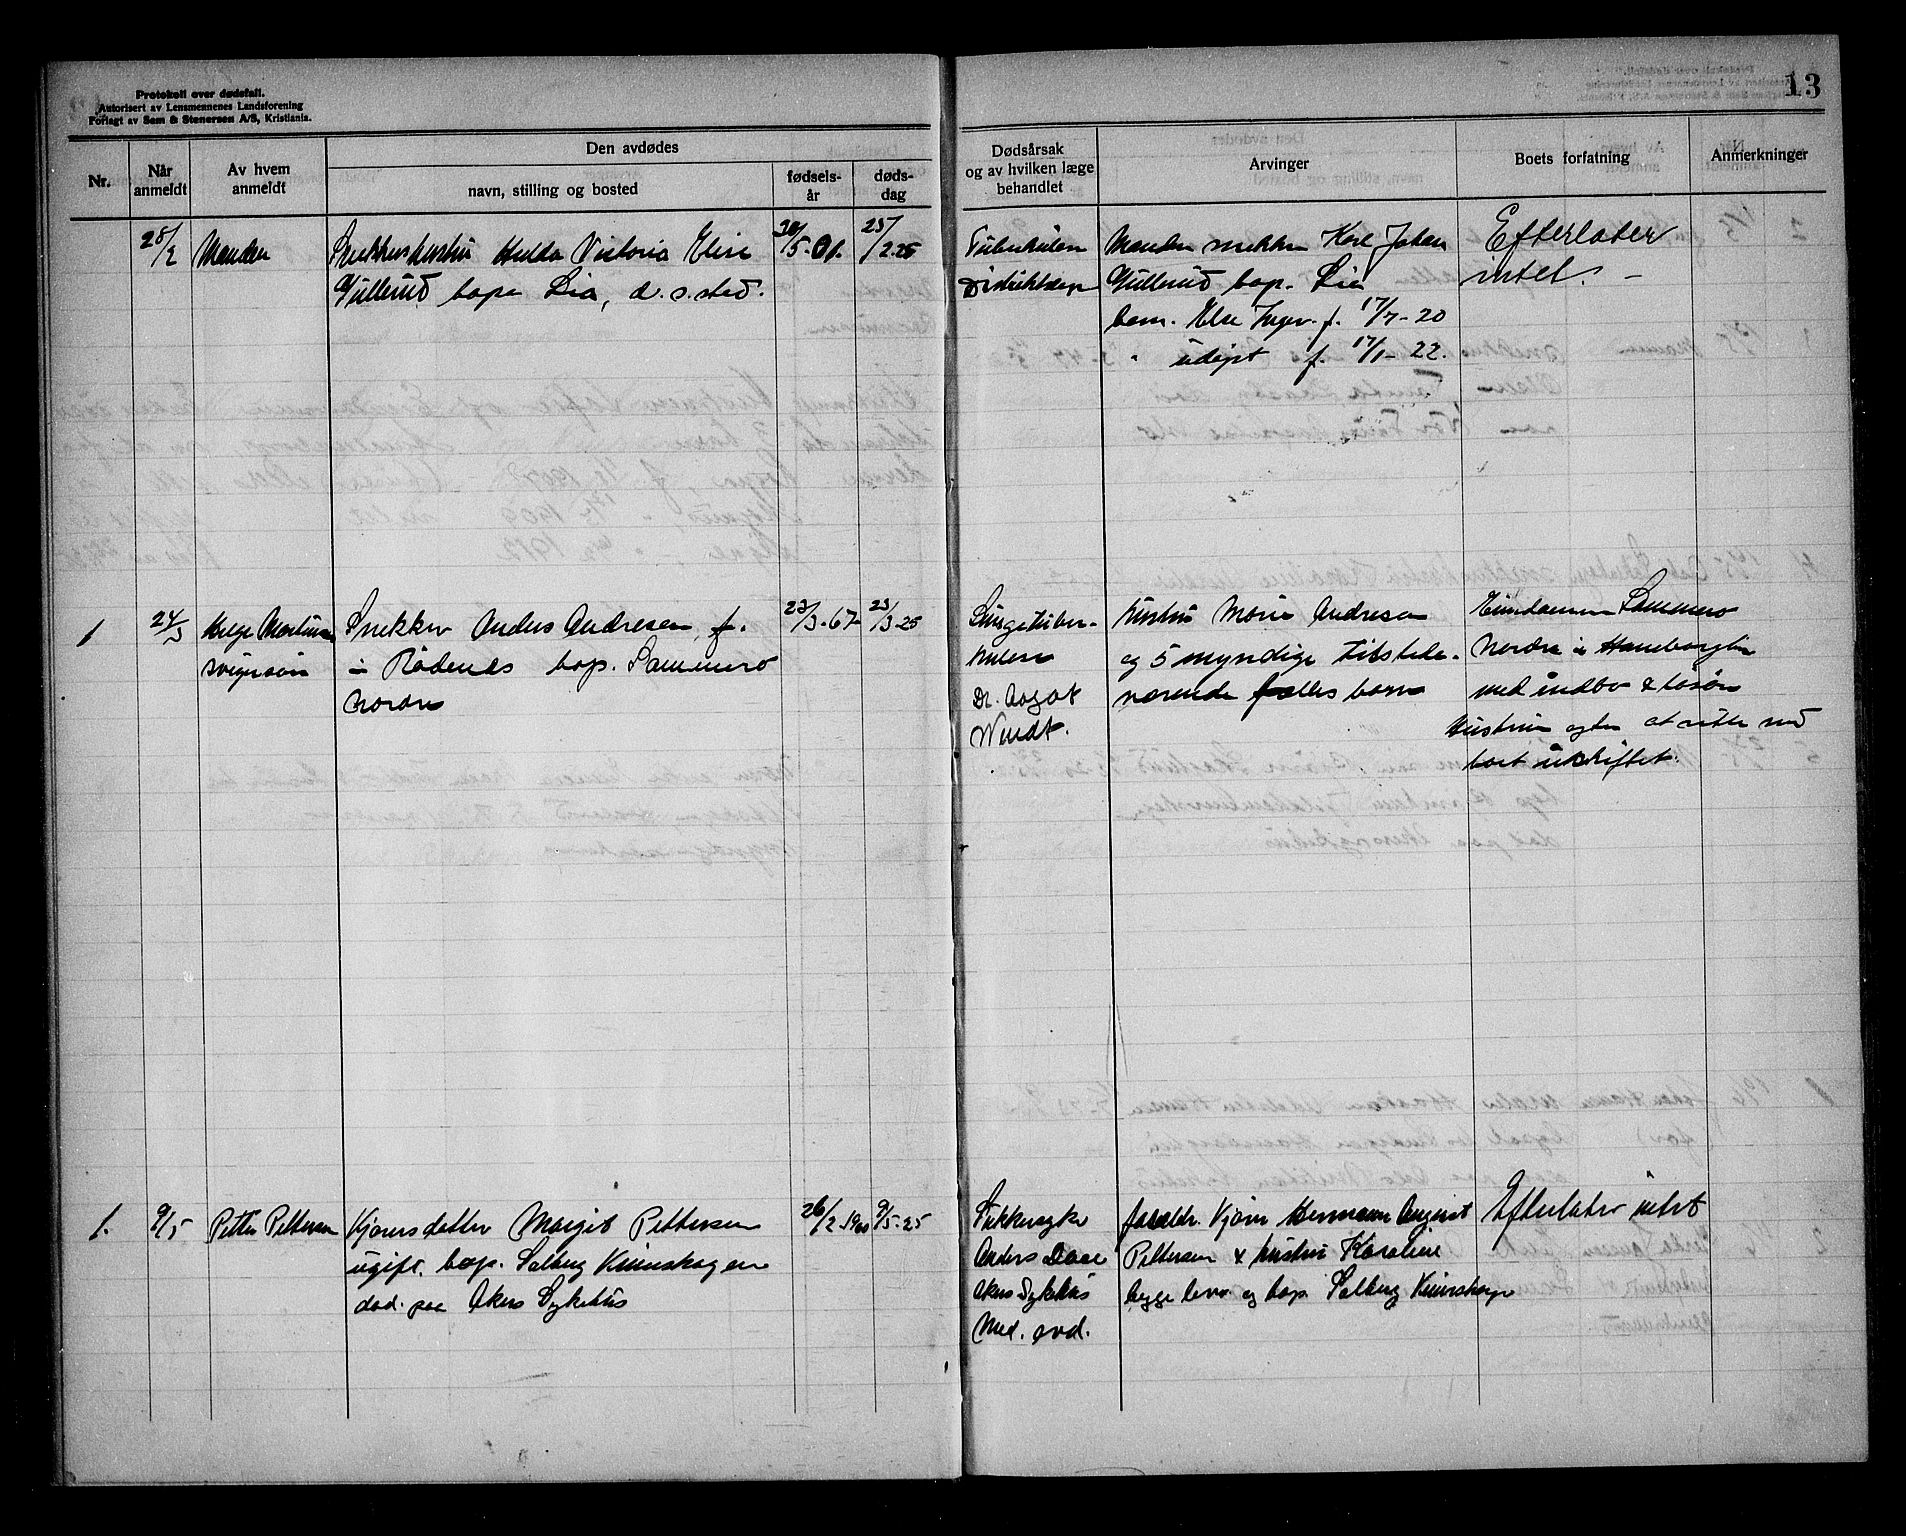 Protokoll over dødsfall.
Autorisert av Lensmennenes Landsforening
Forlagt av Sem & Stenersen A/S, Kristiania.
13
Nr.
Når anmeldt
Av hvem anmeldt
Den avdødes
navn, stilling og bosted
fødselsår
dødsdag
Dødsårsak og av hvilken læge behandlet
Arvinger
Boets forfatning
Anmerkninger
28/2
Manden
Snekkerhustru Hulda Victoria Elise
Gullerud bope Lia, d. s. sted.
5-01.
25/2-25
Tuberkulose
Distriktslæge
Manden snekker Karl Johan
Gullerud bop. Lia
barn. Else Inger f. 17/7-20
" udøpt f. 17/1-22.
Efterlater
intet. -
1
24/3
Helge Martinsen
Snekker Anders Andresen, f.
i Rödenes bop. Sammerö
nordre
23/3-67
23/3-25
Lungetuber-
kulose
Dr. Aagot
Windt.
hustru Marie Andresen
og 5 myndige tilstede-
værende fælles barn
Eiendommen Sammerö
nordre i
med indbo & løsøre
Hustruen agter at sitte med
boet uskiftet.
1.
9/5
Petter Pettersen
Kjøresdatter Margit Pettersen
ugift. bop. Solberg
død paa Akers Sykehus
26/2-1900
9/5-25
Sukkersyke
Anders Daae
Akers Sykehus
Med. avd.
forældr. Kjører Hermann August
Pettersen & hustru Karoline
begge lever og bop. Solberg
Efterlater intet